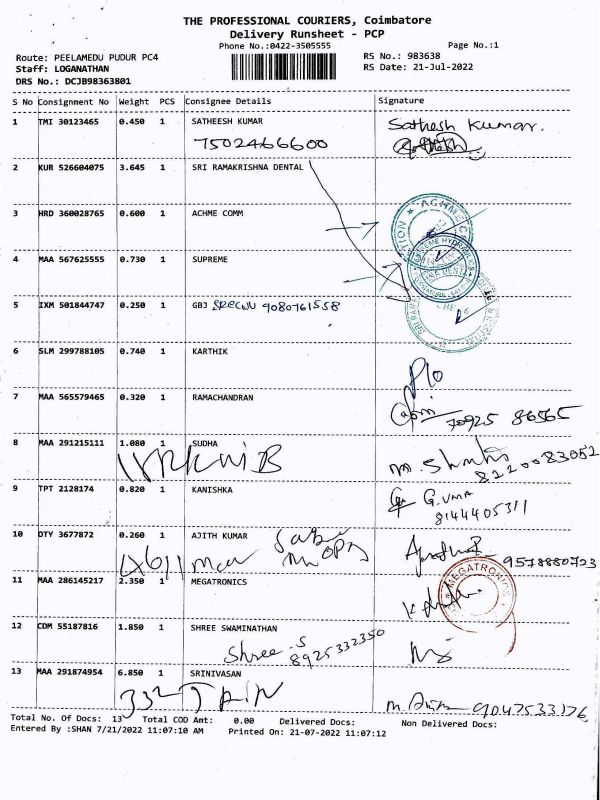 THE PROFESSIONAL COURIERS, Coimbatore
Delivery Runsheet - PCP
Phone No.:0422-3505555
Page No.:1
Route: PEELAMEDU PUDUR PC4
RS No.: 983638
Staff: LOGANATHAN
RS Date: 21-Jul-2022
DRS No.: DCJB98363801
S No Consignment No Weight PCS Consignee Details Signature
1 TMI 30123465 0.450 1 SATHEESH KUMAR Sathesh Kumar.
7502466600
2 KUR 526604075 3.645 1 SRI RAMAKRISHNA DENTAL
3 HRD 360028765 0.600 1 ACHME COMM
ACHME C
4 MAA 567625555 0.730 1 SUPREME
5 IXM 501844747 0.250 1 GBJ 9080761558
6 SLM 299788105 0.740 1 KARTHIK
P/o
7 MAA 565579465 0.320 1 RAMACHANDRAN
70925 86565
8 MAA 291215111 1.080 1 SUDHA
8220083052
9 TPT 2128174 0.820 1 KANISHKA G. UMA
8144405311
10 OTY 3677872 0.260 1 AJITH KUMAR
9578880723
11 MAA 286145217 2.350 1 MEGATRONICS
MEGATRONICS
12 CDM 55187816 1.850 1 SHREE SWAMINATHAN
Shree .S
8925332350
13 MAA 291874954 6.850 1 SRINIVASAN
9047533176
Total No. Of Docs: 13 Total COD Amt: 0.00 Delivered Docs: Non Delivered Docs:
Entered By :SHAN 7/21/2022 11:07:10 AM Printed On: 21-07-2022 11:07:12